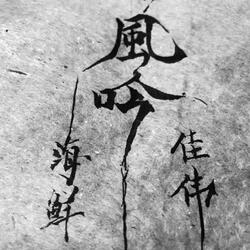 風吟
佳偉
海鮮